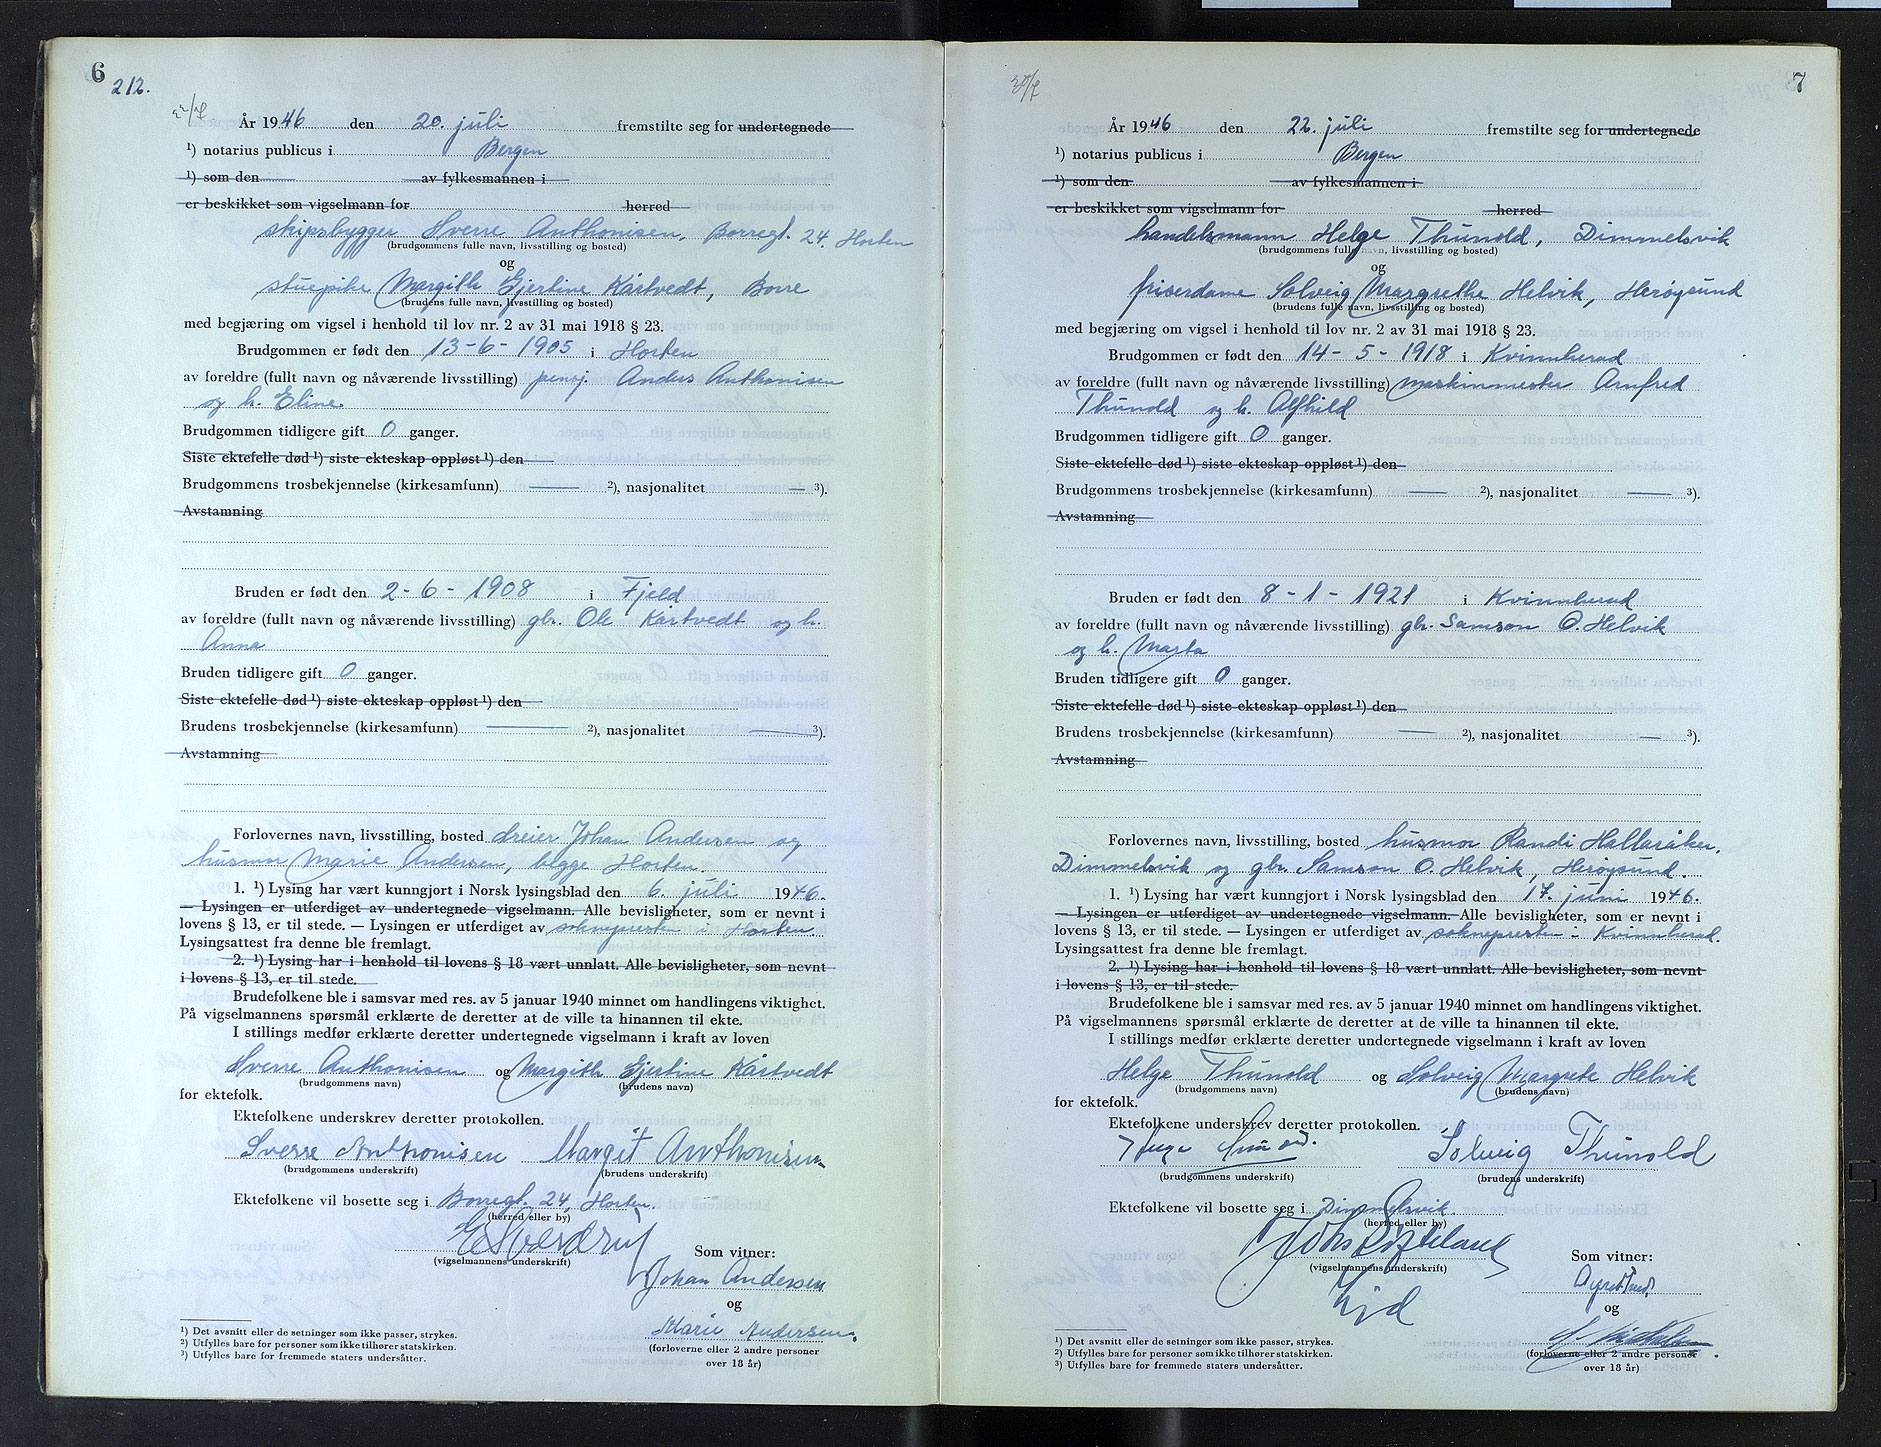 6
212.
22/7
År 1946 den 20. juli fremstilte seg for undertegnede
¹) notarius publicus i Bergen
¹) som den av fylkesmannen i
er beskikket som vigselmann for herred
skipsbygger Sverre Anthonisen, Borregt. 24, Horten
(brudgommens fulle navn, livsstilling og bosted)
og
stuepike Margith Gjertine Kårtvedt, Borre
(brudens fulle navn, livsstilling og bosted)
med begjæring om vigsel i henhold til lov nr. 2 av 31 mai 1918 § 23.
Brudgommen er født den 13-6-1905 i Horten
av foreldre (fullt navn og nåværende livsstilling) pensj. Anders Anthonisen
og h. Eline
Brudgommen tidligere gift 0 ganger.
Siste ektefelle død ¹) siste ekteskap oppløst ¹) den
Brudgommens trosbekjennelse (kirkesamfunn) — ²), nasjonalitet — ³).
Avstamning
Bruden er født den 2-6-1908 i Fjeld
av foreldre (fullt navn og nåværende livsstilling) gbr. Ole Kårtvedt og h.
Anna
Bruden tidligere gift 0 ganger.
Siste ektefelle død ¹) siste ekteskap oppløst ¹) den
Brudens trosbekjennelse (kirkesamfunn) — ²), nasjonalitet — ³).
Avstamning
Forlovernes navn, livsstilling, bosted dreier Johan Andersen og
husmor Marie Andersen, begge Horten.
1. ¹) Lysing har vært kunngjort i Norsk lysingsblad den 6. juli 1946.
— Lysingen er utferdiget av undertegnede vigselmann. Alle bevisligheter, som er nevnt i
lovens § 13, er til stede. — Lysingen er utferdiget av soknepresten i Horten
Lysingsattest fra denne ble fremlagt.
2. ¹) Lysing har i henhold til lovens § 18 vært unnlatt. Alle bevisligheter, som nevnt
i lovens § 13, er til stede.
Brudefolkene ble i samsvar med res. av 5 januar 1940 minnet om handlingens viktighet.
På vigselmannens spørsmål erklærte de deretter at de ville ta hinannen til ekte.
I stillings medfør erklærte deretter undertegnede vigselmann i kraft av loven
Sverre Anthonisen og Margith Gjertine Kårtvedt
(brudgommens navn) (brudens navn)
for ektefolk.
Ektefolkene underskrev deretter protokollen.
Sverre Anthonisen Margit Anthonisen
(brudgommens underskrift) (brudens underskrift)
Ektefolkene vil bosette seg i Borregt. 24, Horten.
(herred eller by)
(vigselmannens underskrift)
Som vitner:
Johan Andersen
og
Marie Andersen.
(forloverne eller 2 andre personer
over 18 år)
¹) Det avsnitt eller de setninger som ikke passer, strykes.
²) Utfylles bare for personer som ikke tilhører statskirken.
³) Utfylles bare for fremmede staters undersåtter.
7
30/7
År 1946 den 22. juli fremstilte seg for undertegnede
¹) notarius publicus i Bergen
¹) som den av fylkesmannen i
er beskikket som vigselmann for herred
handelsmann Helge Thunold, Dimmelsvik
(brudgommens fulle navn, livsstilling og bosted)
og
friserdame Solveig Margrethe Helvik, Herøysund
(brudens fulle navn, livsstilling og bosted)
med begjæring om vigsel i henhold til lov nr. 2 av 31 mai 1918 § 23.
Brudgommen er født den 14-5-1918 i Kvinnherad
av foreldre (fullt navn og nåværende livsstilling) maskinmester Arnfred
Thunold og h. Alfhild
Brudgommen tidligere gift 0 ganger.
Siste ektefelle død ¹) siste ekteskap oppløst ¹) den
Brudgommens trosbekjennelse (kirkesamfunn) — ²), nasjonalitet — ³).
Avstamning
Bruden er født den 8-1-1921 i Kvinnherad
av foreldre (fullt navn og nåværende livsstilling) gbr. Samson O. Helvik
og h. Marta
Bruden tidligere gift 0 ganger.
Siste ektefelle død ¹) siste ekteskap oppløst ¹) den
Brudens trosbekjennelse (kirkesamfunn) — ²), nasjonalitet — ³).
Avstamning
Forlovernes navn, livsstilling, bosted husmor Randi Hallaråker,
Dimmelsvik og gbr. Samson O. Helvik, Herøysund.
1. ¹) Lysing har vært kunngjort i Norsk lysingsblad den 17. juni 1946.
— Lysingen er utferdiget av undertegnede vigselmann. Alle bevisligheter, som er nevnt i
lovens § 13, er til stede. — Lysingen er utferdiget av soknepresten i Kvinnherad.
Lysingsattest fra denne ble fremlagt.
2. ¹) Lysing har i henhold til lovens § 18 vært unnlatt. Alle bevisligheter, som nevnt
i lovens § 13, er til stede.
Brudefolkene ble i samsvar med res. av 5 januar 1940 minnet om handlingens viktighet.
På vigselmannens spørsmål erklærte de deretter at de ville ta hinannen til ekte.
I stillings medfør erklærte deretter undertegnede vigselmann i kraft av loven
Helge Thunold og Solveig Margrete Helvik
(brudgommens navn) (brudens navn)
for ektefolk.
Ektefolkene underskrev deretter protokollen.
Solveig Thunold
(brudgommens underskrift) (brudens underskrift)
Ektefolkene vil bosette seg i Dimmelsvik.
(herred eller by)
(vigselmannens underskrift)
Som vitner:
og
(forloverne eller 2 andre personer
over 18 år)
¹) Det avsnitt eller de setninger som ikke passer, strykes.
²) Utfylles bare for personer som ikke tilhører statskirken.
³) Utfylles bare for fremmede staters undersåtter.